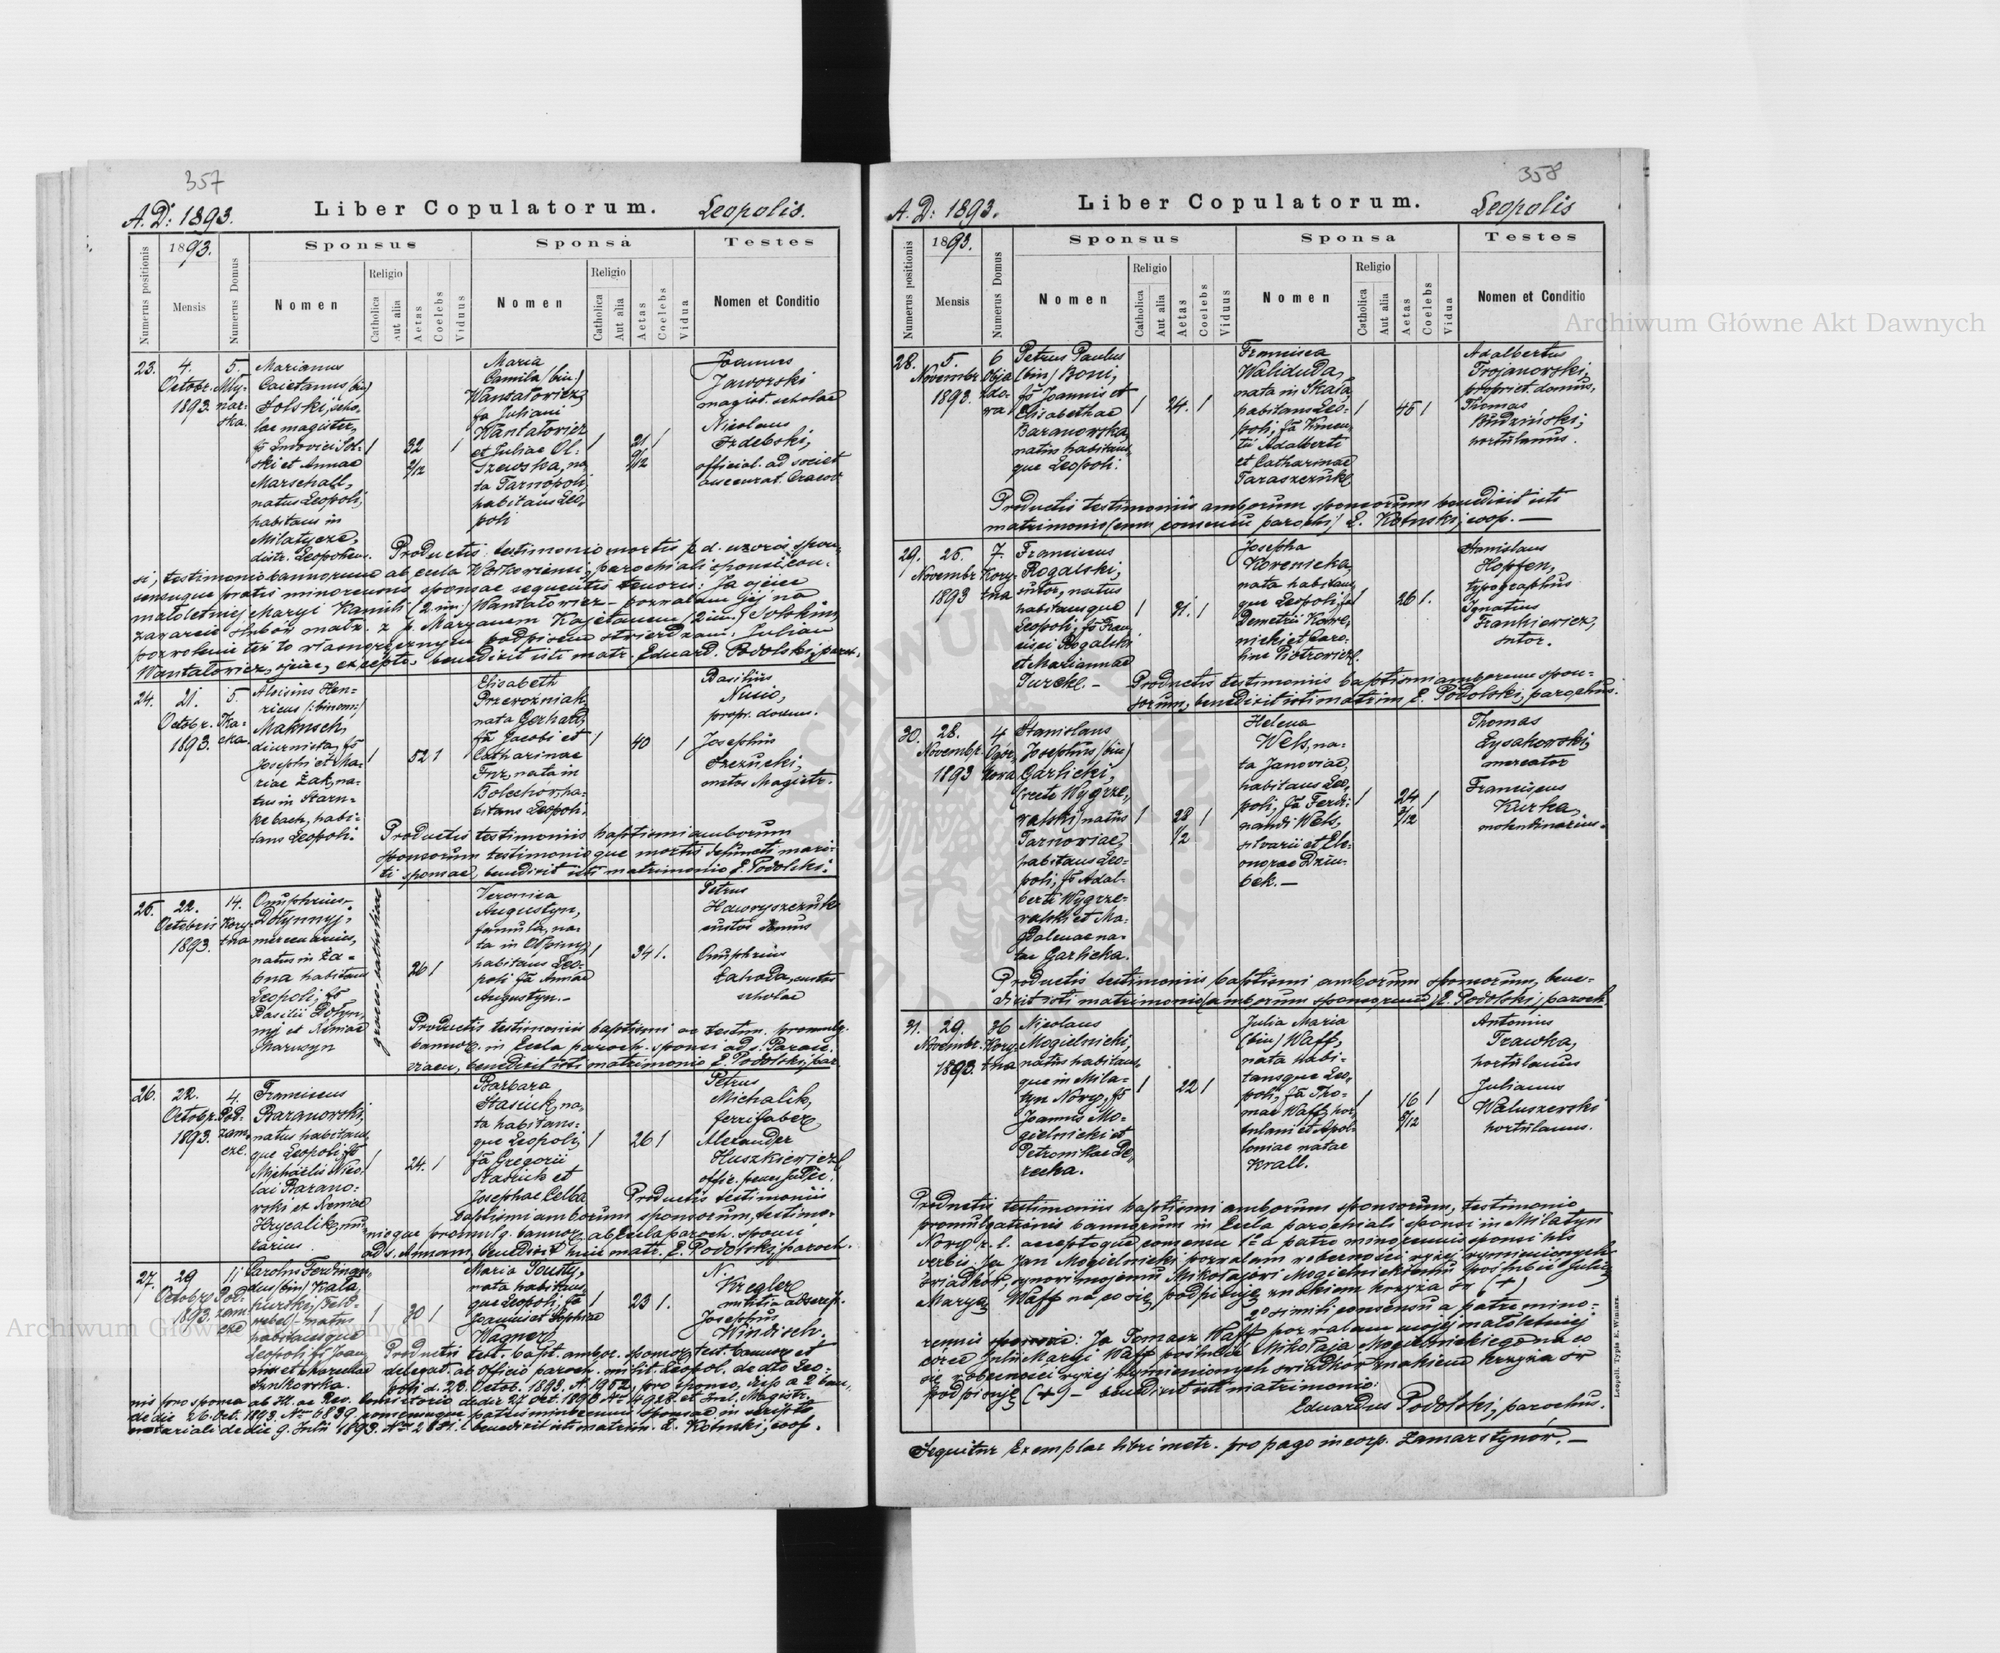 357
A. D: 1893.
Liber Copulatorum.
Leopolis.
Numerus positionis
1893.
Mensis
Numerus Domus
Sponsus
Nomen
Religio
Catholica
Aut alia
Aetas
Coelebs
Viduus
Sponsa
Nomen
Religio
Catholica
Aut alia
Aetas
Coelebs
Vidua
Testes
Nomen et Conditio
23.
4.
Octobr.
1893.
5.
Mły-
nar-
ska.
Marianus
Caietanus (bin)
Solski, scho-
lae magister,
fs Ludovici Sol-
ski et Annae
Marschall,
natus Leopoli,
habitans in
Milatycze,
distr. Leopolien.
1
32
1
Maria
Camila (bin)
Wantałowicz,
fa Juliani
Wantałowicz
et Juliae Ol-
szewska, na-
ta Tarnopoli
habitans Leo-
poli
1
21
1
Joannes
Jaworski
magist. scholae
Nicolaus
official. ad societ
assecurat. Cracov.
Productis: testimonio mortis p. d. uxoris spon-
si, testimonio bannorum ab eccla parochiali sponsi con-
sensuque patris minorennis sponsae sequentis tenoris: Ja ojciec
małoletniej Maryi Kamili (2 im.) Wantałowicz - pozwalam jej na
zawarcie ślubów małż. z p. Maryanem Kajetanem (2 im.) Solskim,
pozwolenie też to własnoręcznym podpisem stwierdzam: Julian
Wantałowicz, ojciec, excepto, benedixit isti matr. Eduard. Podolski, paroch.
24.
21.
Octobr.
1893.
5.
Aloisius Hen-
ricus (binom.)
Makusch,
diurnista, fs
Josephi et Ma-
riae Żak, na-
tus in Starn-
kebach, habi-
tans Leopoli.
1
52
1
Elisabeth
Przewoźniak
nata Gerhard,
fa Jacobi et
Catharinae
nata in
Bolechow, ha-
bitans Leopoli.
1
40
1
Basilius
Nusio,
propr. domus.
Josephus
custos Magistr.
Productis testimoniis baptismi amborum
sponsorum testimonioque mortis defuncti mari-
ti sponsae, benedixit isti matrimonio E. Podolski.
25.
22.
Octobris
1893.
14.
Kory-
tna
Onuphrius
Dołynnyj,
mercenarius,
habitans
Leopoli, fs
Basilii Dołyn-
nyj et Xeniae
graeco-catholicae
26
1
Veronica
Augustyn,
famula, na-
ta in
habitans Leo-
poli fa Annae
Augustyn.-
1
34
1.
Petrus
Hawryszczuk
custos domus
Onuphrius
Łahoda, custos
scholae
Productis testimoniis baptismi ac testim. promulg.
bannor. in Eccla paroch. sponsi ad s. Parasc.
benedixit isti matrimonio E. Podolski, par.
26.
22.
Octobr.
1893.
4.
Pod-
zam-
cze.
Franciscus
Baranowski,
natus habitans-
que Leopoli, fs
Michaelis Nico-
lai Barano-
wski et Xeniae
Hrycalik, mu-
rarius.
1
24.
1
Barbara
Stasiuk, na-
ta habitans-
que Leopoli,
fa Gregorii
Stasiuk et
Josephae Cebla
1
26
1
Petrus
Michalik,
ferrifaber
Alexander
Huszkiewicz
Productis testimoniis
baptismi amborum sponsorum, testimo-
nioque promulg. bannor. ab Eccla paroch. sponsi
ad s. Annam, benedixit huic matr. E. Podolski, paroch.
27.
29
Octobr.
1893.
11
Pod-
zam-
cze
Carolus Ferdinan-
dus (bin)
natus
habitansque
Leopoli fs Joan-
nis et
1
30
1
Maria Tousty,
nata habitans-
que Leopoli, fa
Joannis et Sophiae
Wagner
1
23
1.
N.
Kregler
militiae adscript.
Josephus
Windisch.
Productis test. bapt. ambor. sponsor. test. bannor. et
delegat. ab Officio paroch. milit. Leopol. de dto Leo-
poli d. 23. Octob. 1893. N. 1952,
notariali de die 9. Julii 1893. benedixit isti matrim. E. Kolinski, coop.
358
A. D: 1893.
Liber Copulatorum.
Leopolis
Numerus positionis
1893.
Mensis
Numerus Domus
Sponsus
Nomen
Religio
Catholica
Aut alia
Aetas
Coelebs
Viduus
Sponsa
Nomen
Religio
Catholica
Aut alia
Aetas
Coelebs
Vidua
Testes
Nomen et Conditio
28.
5.
Novembr.
1893.
6
Petrus Paulus
(bin) Boni,
fs Joannis et
Elisabethae
Baranowska,
natus habitans-
que Leopoli.
1
24.
1
Francisca
Waliduda,
nata in Skała,
habitans Leo-
poli, fa
Adalberti
et Catharinae
Taraszczuk
1
45
1
Adalbertus
Trojanowski,
propriet. domus,
Thomas
Budziński,
hortulanus.
Productis testimoniis amborum sponsorum benedixit isti
matrimonio (cum consensu parochi) E. Kolinski, coop. —
29.
25.
Novembr.
1893
7.
Kory-
tna
Franciscus
Rogalski,
sutor, natus
habitansque
Leopoli, fs Fran-
cisci Rogalski
et Mariannae
Turck. -
1
31.
1
Josepha
Korenicka,
nata habitans-
que Leopoli, fa
Demetrii Kore-
nicki et Caro-
linae Piotrowicz.
1
26
1.
Stanislaus
Hopfen,
typographus
Ignatius
Frankiewicz,
sutor.
Productis testimoniis baptismi amborum spon-
sorum, benedixit isti matrim. E. Podolski, parochus.
30.
28.
Novembr.
1893
4
Ogór-
kowa
Stanislaus
Josephus (bin)
Garlicki,
(recte Wygrze-
walski) natus
Tarnoviae,
habitans Leo-
poli, fs Adal-
berti Wygrze-
walski et Ma-
gdalenae na-
tae Garlicka.
1
28
1/2
1
Helena
Wels, na-
ta Janoviae,
habitans Leo-
poli, fa Ferdi-
nandi Wels,
silvarii et Ele-
onorae Dziu-
bek. —
1
24
1
Thomas
Łysakowski,
mercator
Franciscus
Kurka,
molendinarius.
Productis testimoniis baptismi amborum sponsorum, bene-
dixit isti matrimonio (amborum sponsorum) E. Podolski, paroch.
31.
29.
Novembr.
1893.
36
Kory-
tna
Nicolaus
Mogielnicki,
natus habitans-
que in Mila-
tyn Nowy, fs
Joannis Mo-
gielnicki et
Petronillae
1
22
1
Julia Maria
(bin) Waff,
nata habi-
tansque Leo-
poli, fa Tho-
mae Waff, hor-
tulani et Apol-
loniae natae
Krall.
1
16
5/12
1
Antonius
Trawka,
hortulanus
Julianus
Waluszewski
hortulanus.
Productis testimoniis baptismi amborum sponsorum, testimonio
promulgationis bannorum in Eccla parochiali sponsi in Milatyn
Nowy r. l. acceptoque consensu 1º a patre minorennis sponsi his
verbis: Ja Jan Mogielnicki pozwalam w obecności wyżej wymienionych
świadków, synowi mojemu Mikołajowi Mogielnickiemu poślubić Julię
Maryę Waff na co się podpisuję znakiem krzyża św (+)
2º simili consensu a patre mino-
rennis sponsae: Ja Tomasz Waff pozwalam mojej małoletniej
córce Julii Maryi Waff poślubić Mikołaja Mogielnickiego na co
się w obecności wyżej wymienionych świadków znakiem krzyża św
podpisuję (+) - benedixit isti matrimonio:
Eduardus Podolski, parochus.
Sequitur Exemplar libri metr. pro pago incorp. Zamarstynów. —
Leopoli. Typis E. Winiarz.
Archiwum Główne Akt Dawnych
Archiwum Główne Akt Dawnych